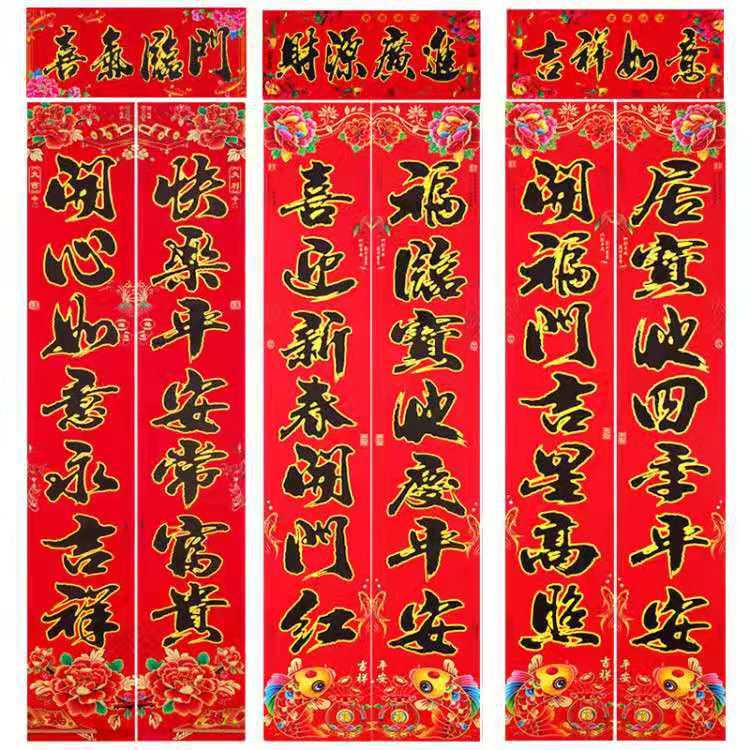 喜氣臨門
開心如意永吉祥
快樂平安常富貴
大吉
大利
財源廣進
喜迎新春開門红
福臨寶地慶平安
吉祥
平安
吉祥如意
開福門吉星高照
居寶地四季平安
吉祥
平安